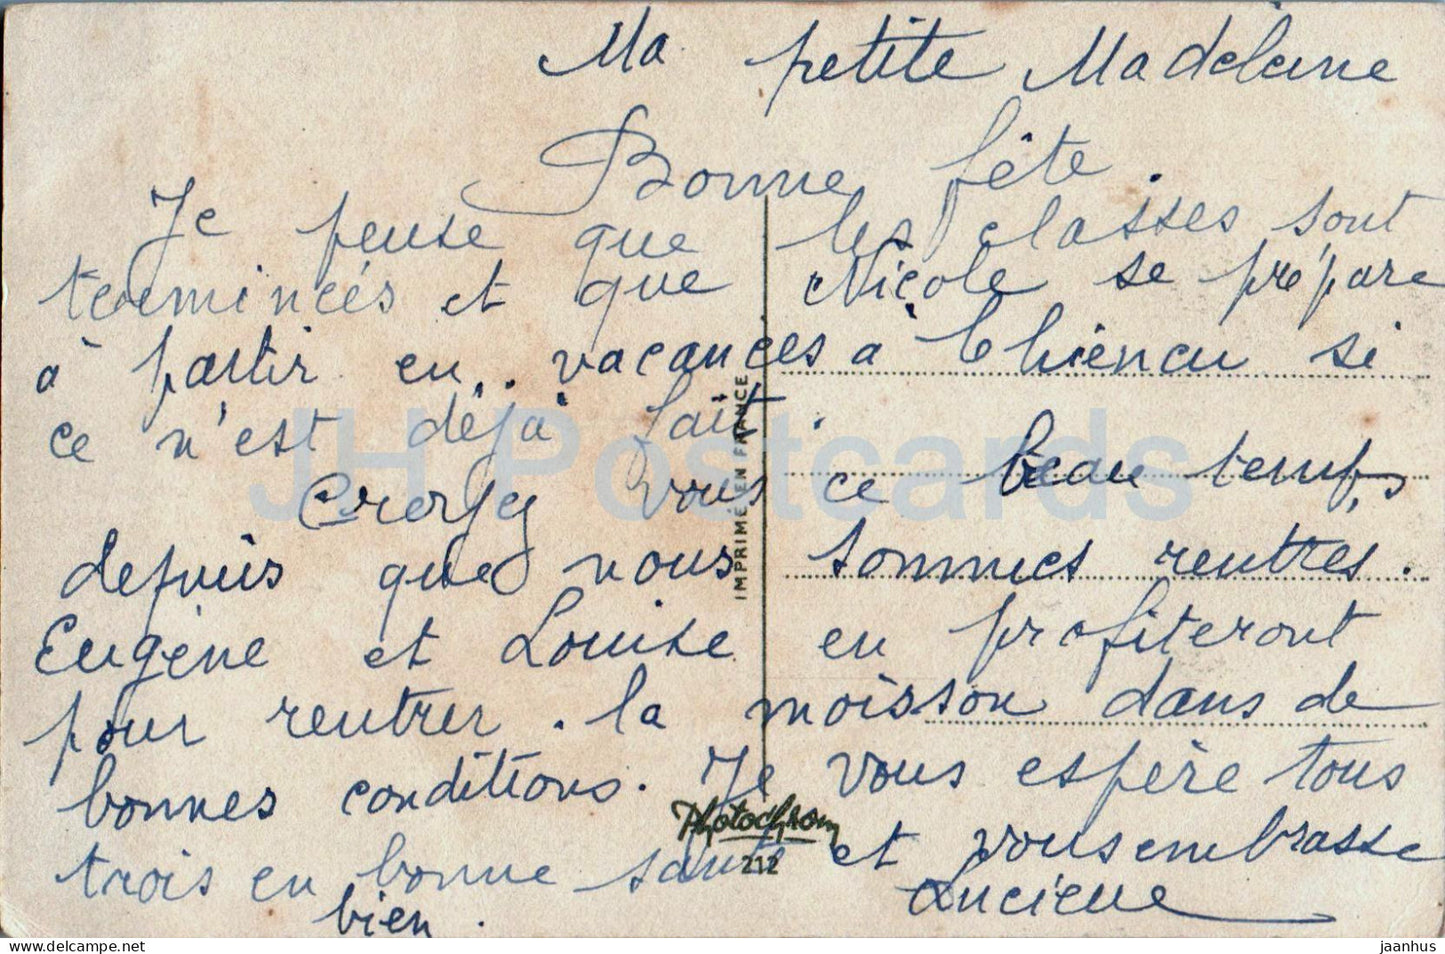 Ma petite Madeleine
Bonne fête.
Je pense que les classes sont
terminées et que Nicole se prépare
à partir en vacances a Chiencu si
ce n'est déjà fait.
Croyez vous ce beau temps
depuis que nous sommes rentrés.
Eugène et Louise en profiteront
pour rentrer. la moisson dans de
bonnes conditions. Je vous espère tous
trois en bonne santé et vous embrasse
bien. Lucienne
IMPRIME EN FRANCE
Photochrom
212
JH Postcards
jaanhus © delcampe.net